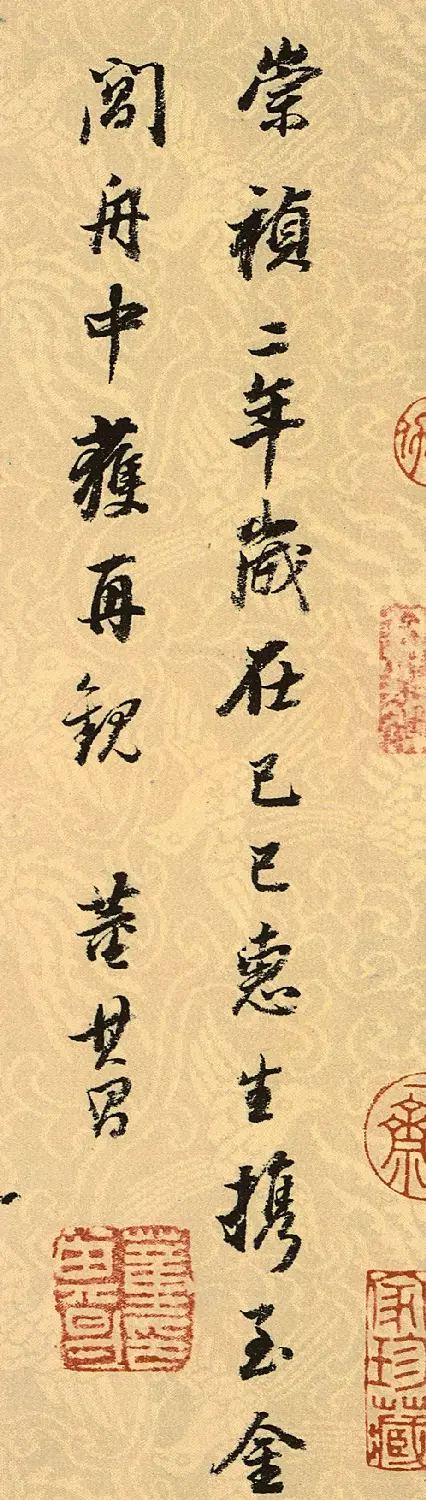 崇禎二年歲在己巳惠生攜至金
閶舟中獲再觀 董其昌
珍藏